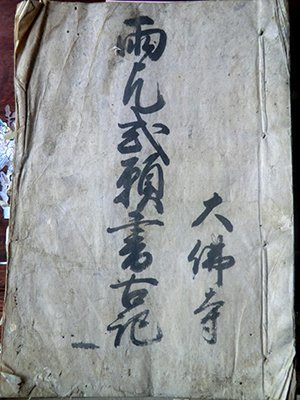 大佛寺
雨乞式願書古記